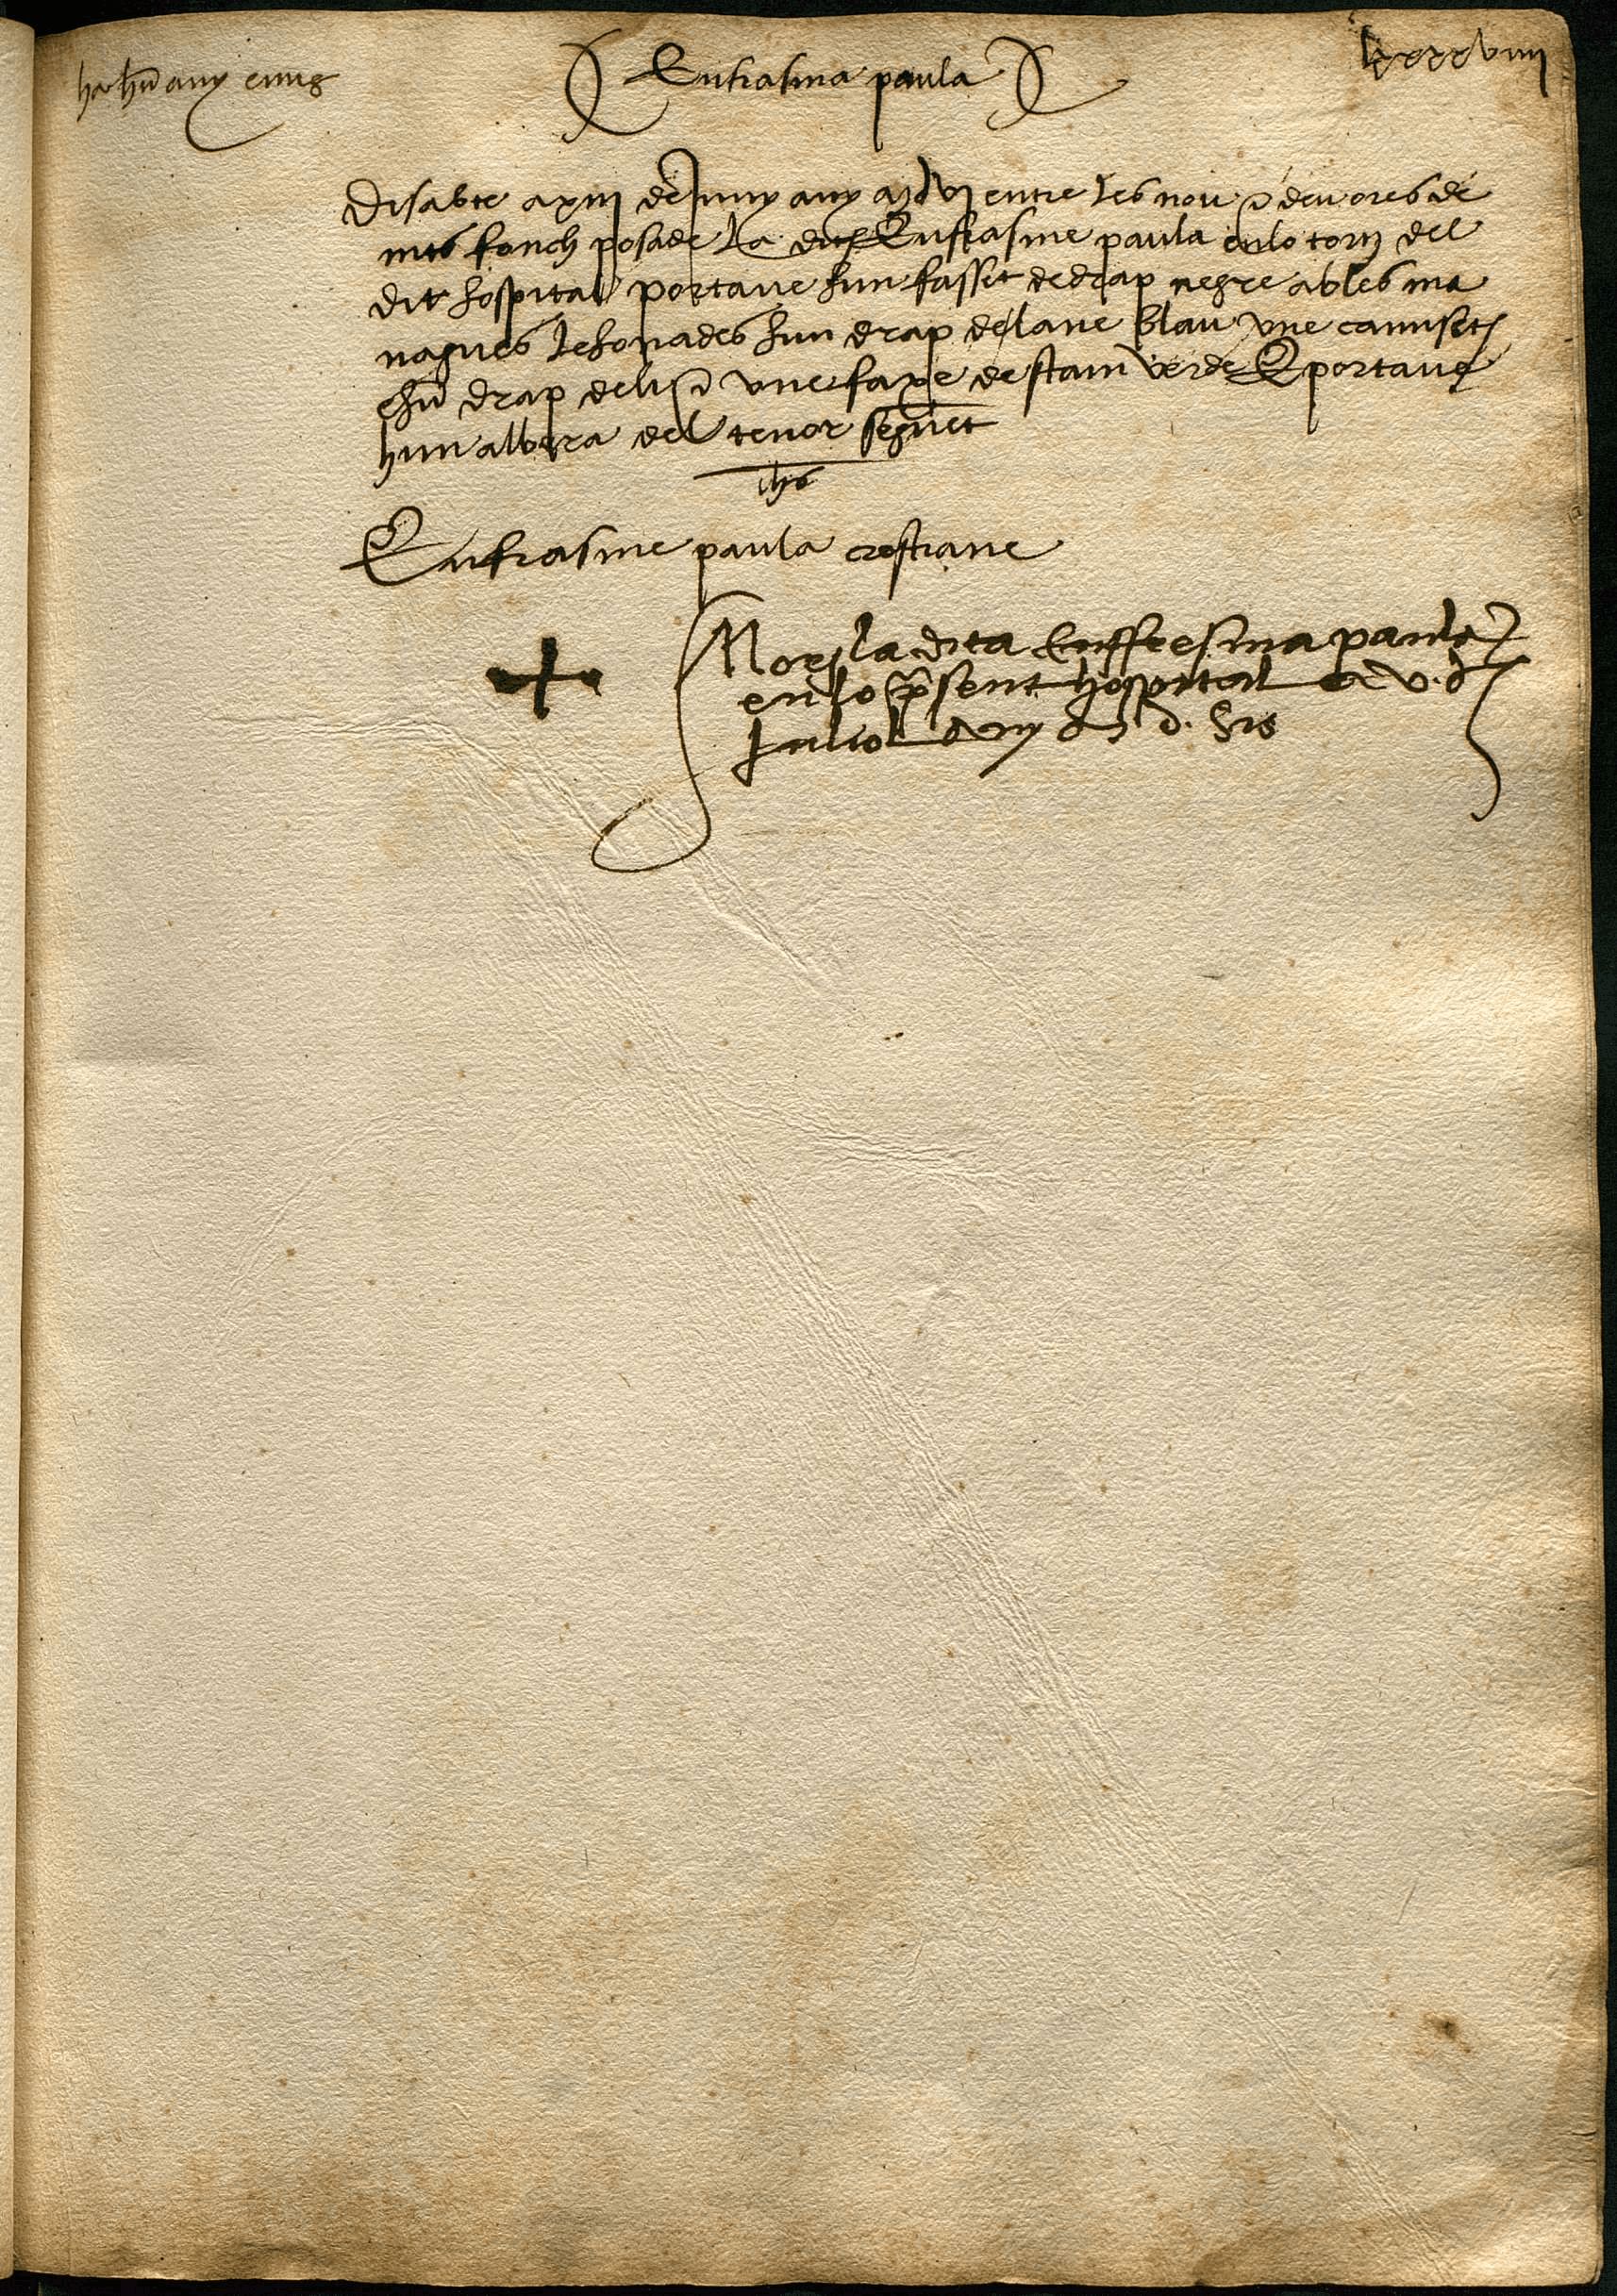 ha hũ any e mig
Eufrasina paula
lxxxxviiii
Disabte a xiii de juny any mdvi entre les nou e deu ores de
nits fonch posade la dita Eufrasine paula en lo torn del
dit hospital portave hun fasset de drap negre ab les ma
negues lehonades hun drap de lane blau une camiseta
e hũ drap de li e une faxe de stam verde E portave
hun albara del tenor seguẽt
ihs
Eufrasine paula crestiane
Mori la dita Euffresina paula
en lo p̃sent hospital a v. de
Juliol any m d. sis